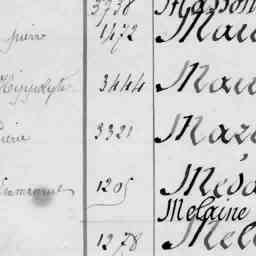 3738 Masson
pierre 1472 Mau
Hippolyte 3444 Mau
Pierre 3321 Maz
Emmanuel 1205 Méda
Melaine
1278 Mel